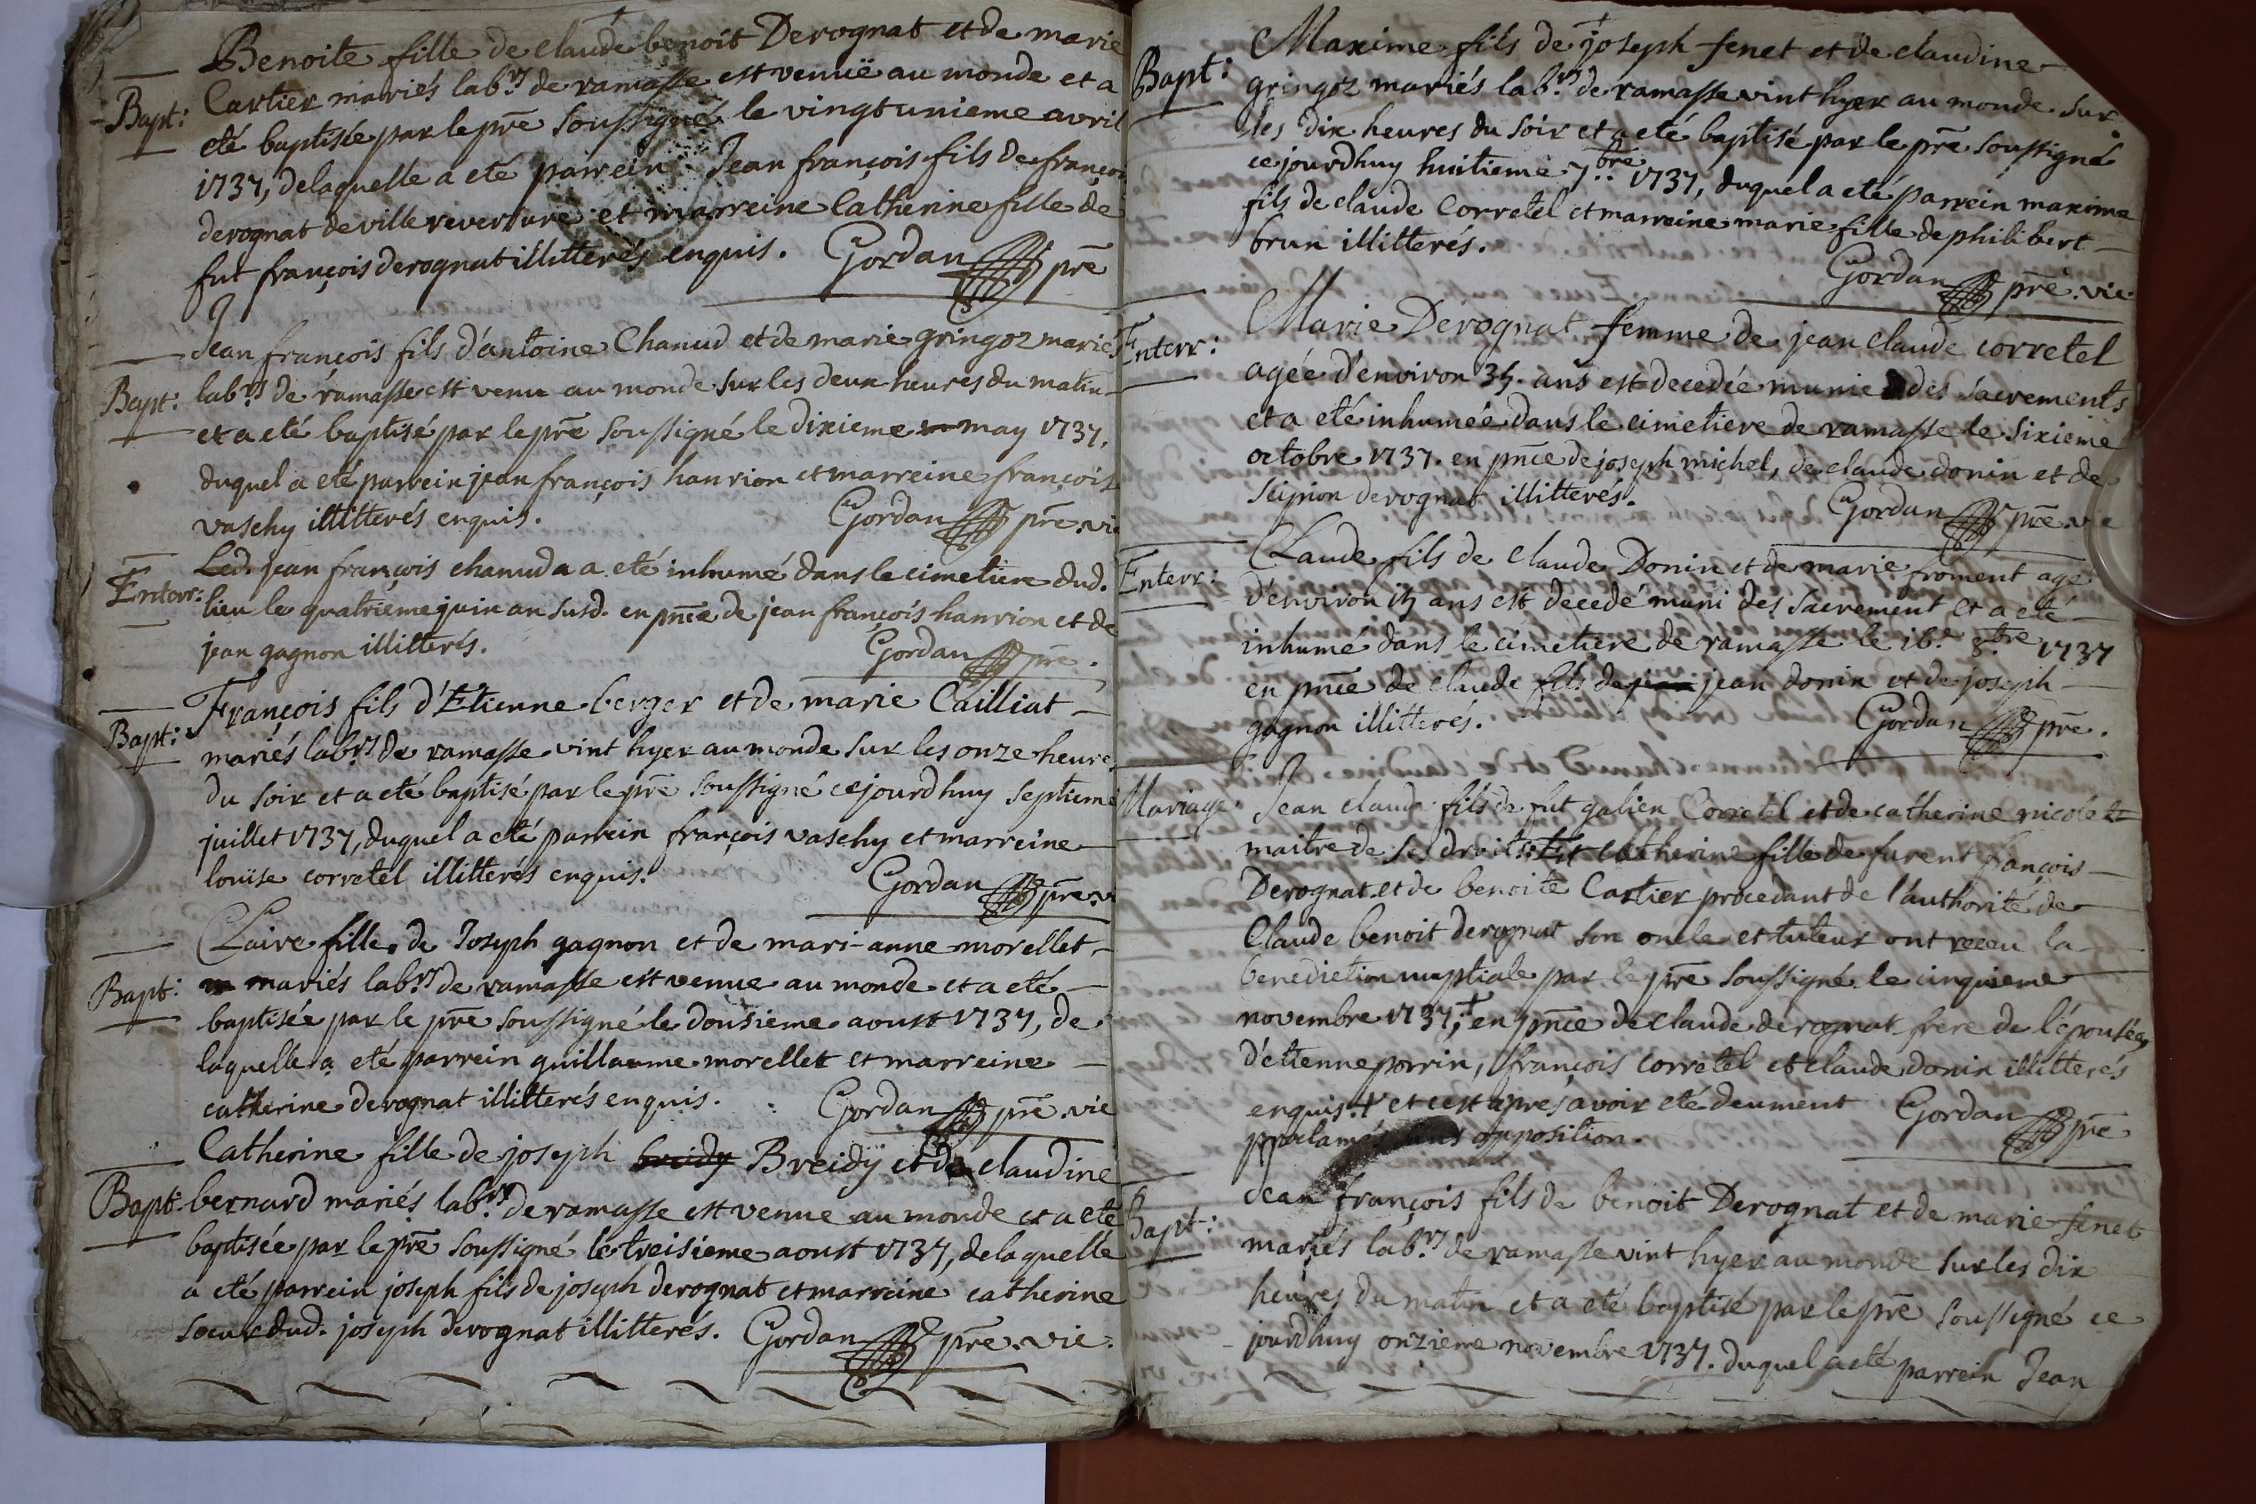 Benoite fille de claude benoit Derognat et de marie
Bapt: Cartier mariés labrs. de ramasse est venuë au monde et a
eté baptisée par le pre soussigné le vingt unieme avril
1737, de laquelle a eté parrein Jean françois fils de françois
derognat de villereversure et marreine Catherine fille de
fut françois derognat illitterés enquis. Gordan pre
Jean françois fils d'antoine Chanud et de marie gringoz mariés
Bapt: labrs. de ramasse est venu au monde sur les deux heures du matin
et a eté baptisé par le pre soussigné le dixieme may 1737,
duquel a eté parrein jean françois hanrion et marreine françoise
vaschy illitterés enquis. Gordan pre. vic
Led. jean françois chanud a a eté inhumé dans le cimetiere dud.
Enterr: lieu le quatrieme juin an susd. en pnce de jean françois hanrion et de
jean gagnon illitterés. Gordan pre.
François fils d'Etienne berger et de marie Cailliat
Bapt: mariés labrs. de ramasse vint hyer au monde sur les onze heures
du soir et a eté baptisé par le pre soussigné ce jourdhuy septieme
juillet 1737, duquel a eté parrein françois vaschy et marreine
louise corretel illitterés enquis. Gordan pre. v
Claire fille de Joseph gagnon et de mari-anne morellet
Bapt: mariés labrs. de ramasse est venue au monde et a eté
baptisée par le pre soussigné le dousieme aoust 1737, de
laquelle a eté parrein guillaume morellet et marreine
catherine derognat illitterés enquis. Gordan pre. vic
Catherine fille de joseph breidy Breidÿ et de claudine
Bapt: bernard mariés labrs. de ramasse est venue au monde et a eté
baptisée par le pre soussigné le treisieme aoust 1737, de laquelle
a eté parrein joseph fils de joseph derognat et marreine catherine
soeur dud. joseph derognat illitterés. Gordan pre. vic.
Maxime fils de joseph fenet et de claudine
Bapt: gringoz mariés labrs. de ramasse vint hyer au monde sur
les dix heures du soir et a eté baptisé par le pre soussigné
ce jourdhuy huitieme 7bre. 1737, duquel a eté parrein maxime
fils de claude Corretel et marreine marie fille de philibert
brun illitterés.
Gordan pre. vic.
Marie Derognat femme de jean claude corretel
Enterr: agée d'environ 35. ans est decedée munie des sacrements
et a eté inhumée dans le cimetiere de ramasse le sixieme
octobre 1737. en pnce de joseph michel, de claude donin et de
scipion derognat illitterés. Gordan pre. vic
Claude fils de claude Donin et de marie froment agé
Enterr: d'environ 15 ans est decedé muni des sacrement et a eté
inhumé dans le cimetiere de ramasse le 16e. 8bre 1737
en pnce de claude fils de jean jean donin et de joseph
gagnon illitterés. Gordan pre.
Mariage Jean claude fils de fut galien Corretel et de catherine nicolett
maitre de ses droits: Et catherine fille de furent françois
Derognat et de benoite Cartier procedant de l'authorité de
Claude benoit derognat son oncle et tuteur ont receu la
benediction nuptiale par le pre soussigné le cinquieme
novembre 1737,+ en pnce de claude derognat frere de l'épousée,
d'etienne porrin, françois corretel et claude donin illitterés
enquis. + et c'est apres avoir eté deument Gordan pre
proclamés sans opposition.
Jean françois fils de benoit Derognat et de marie fenet
Bapt: mariés labrs. de ramasse vint hyer au monde sur les dix
heures du matin et a eté baptisé par le pre soussigné ce
jourdhuy onzieme novembre 1737. duquel a eté parrein Jean